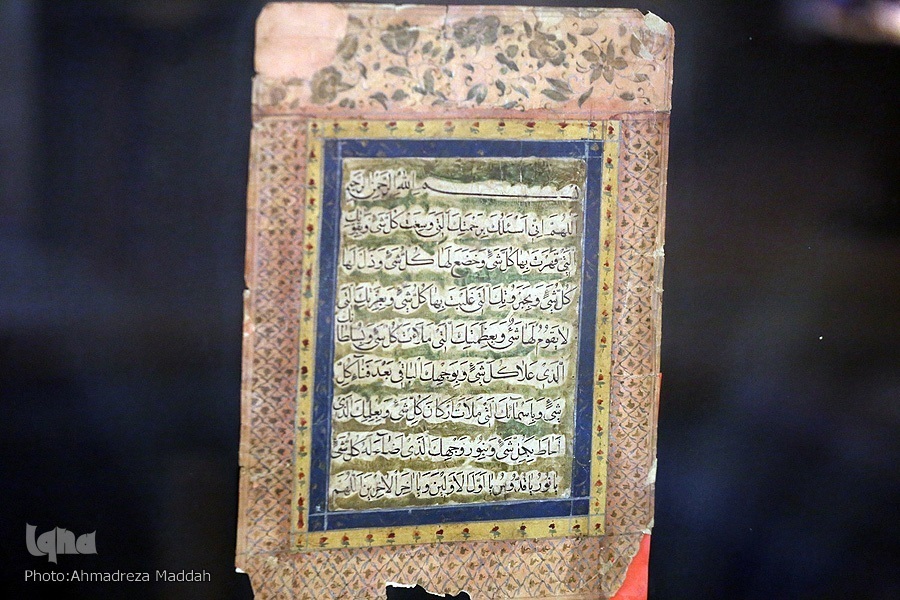 بسم الله الرحمن الرحیم
اللهم انی اسئلک برحمتک التی وسعت کل شیء وبقوتک
التی قهرت بها کل شیء وخضع لها کل شیء وذل لها
کل شیء وبجبروتک التی غلبت بها کل شیء وبعزتک التی
لا یقوم لها شیء وبعظمتک التی ملأت کل شیء وبسلطانک
الذی علا کل شیء وبوجهک الباقی بعد فناء کل
شیء وباسمائک التی ملأت ارکان کل شیء وبعلمک الذی
احاط بکل شیء وبنور وجهک الذی اضاء له کل شیء
یا نور یا قدوس یا اول الاولین ویا اخر الاخرین اللهم
Iqna
Photo:Ahmadreza Maddah